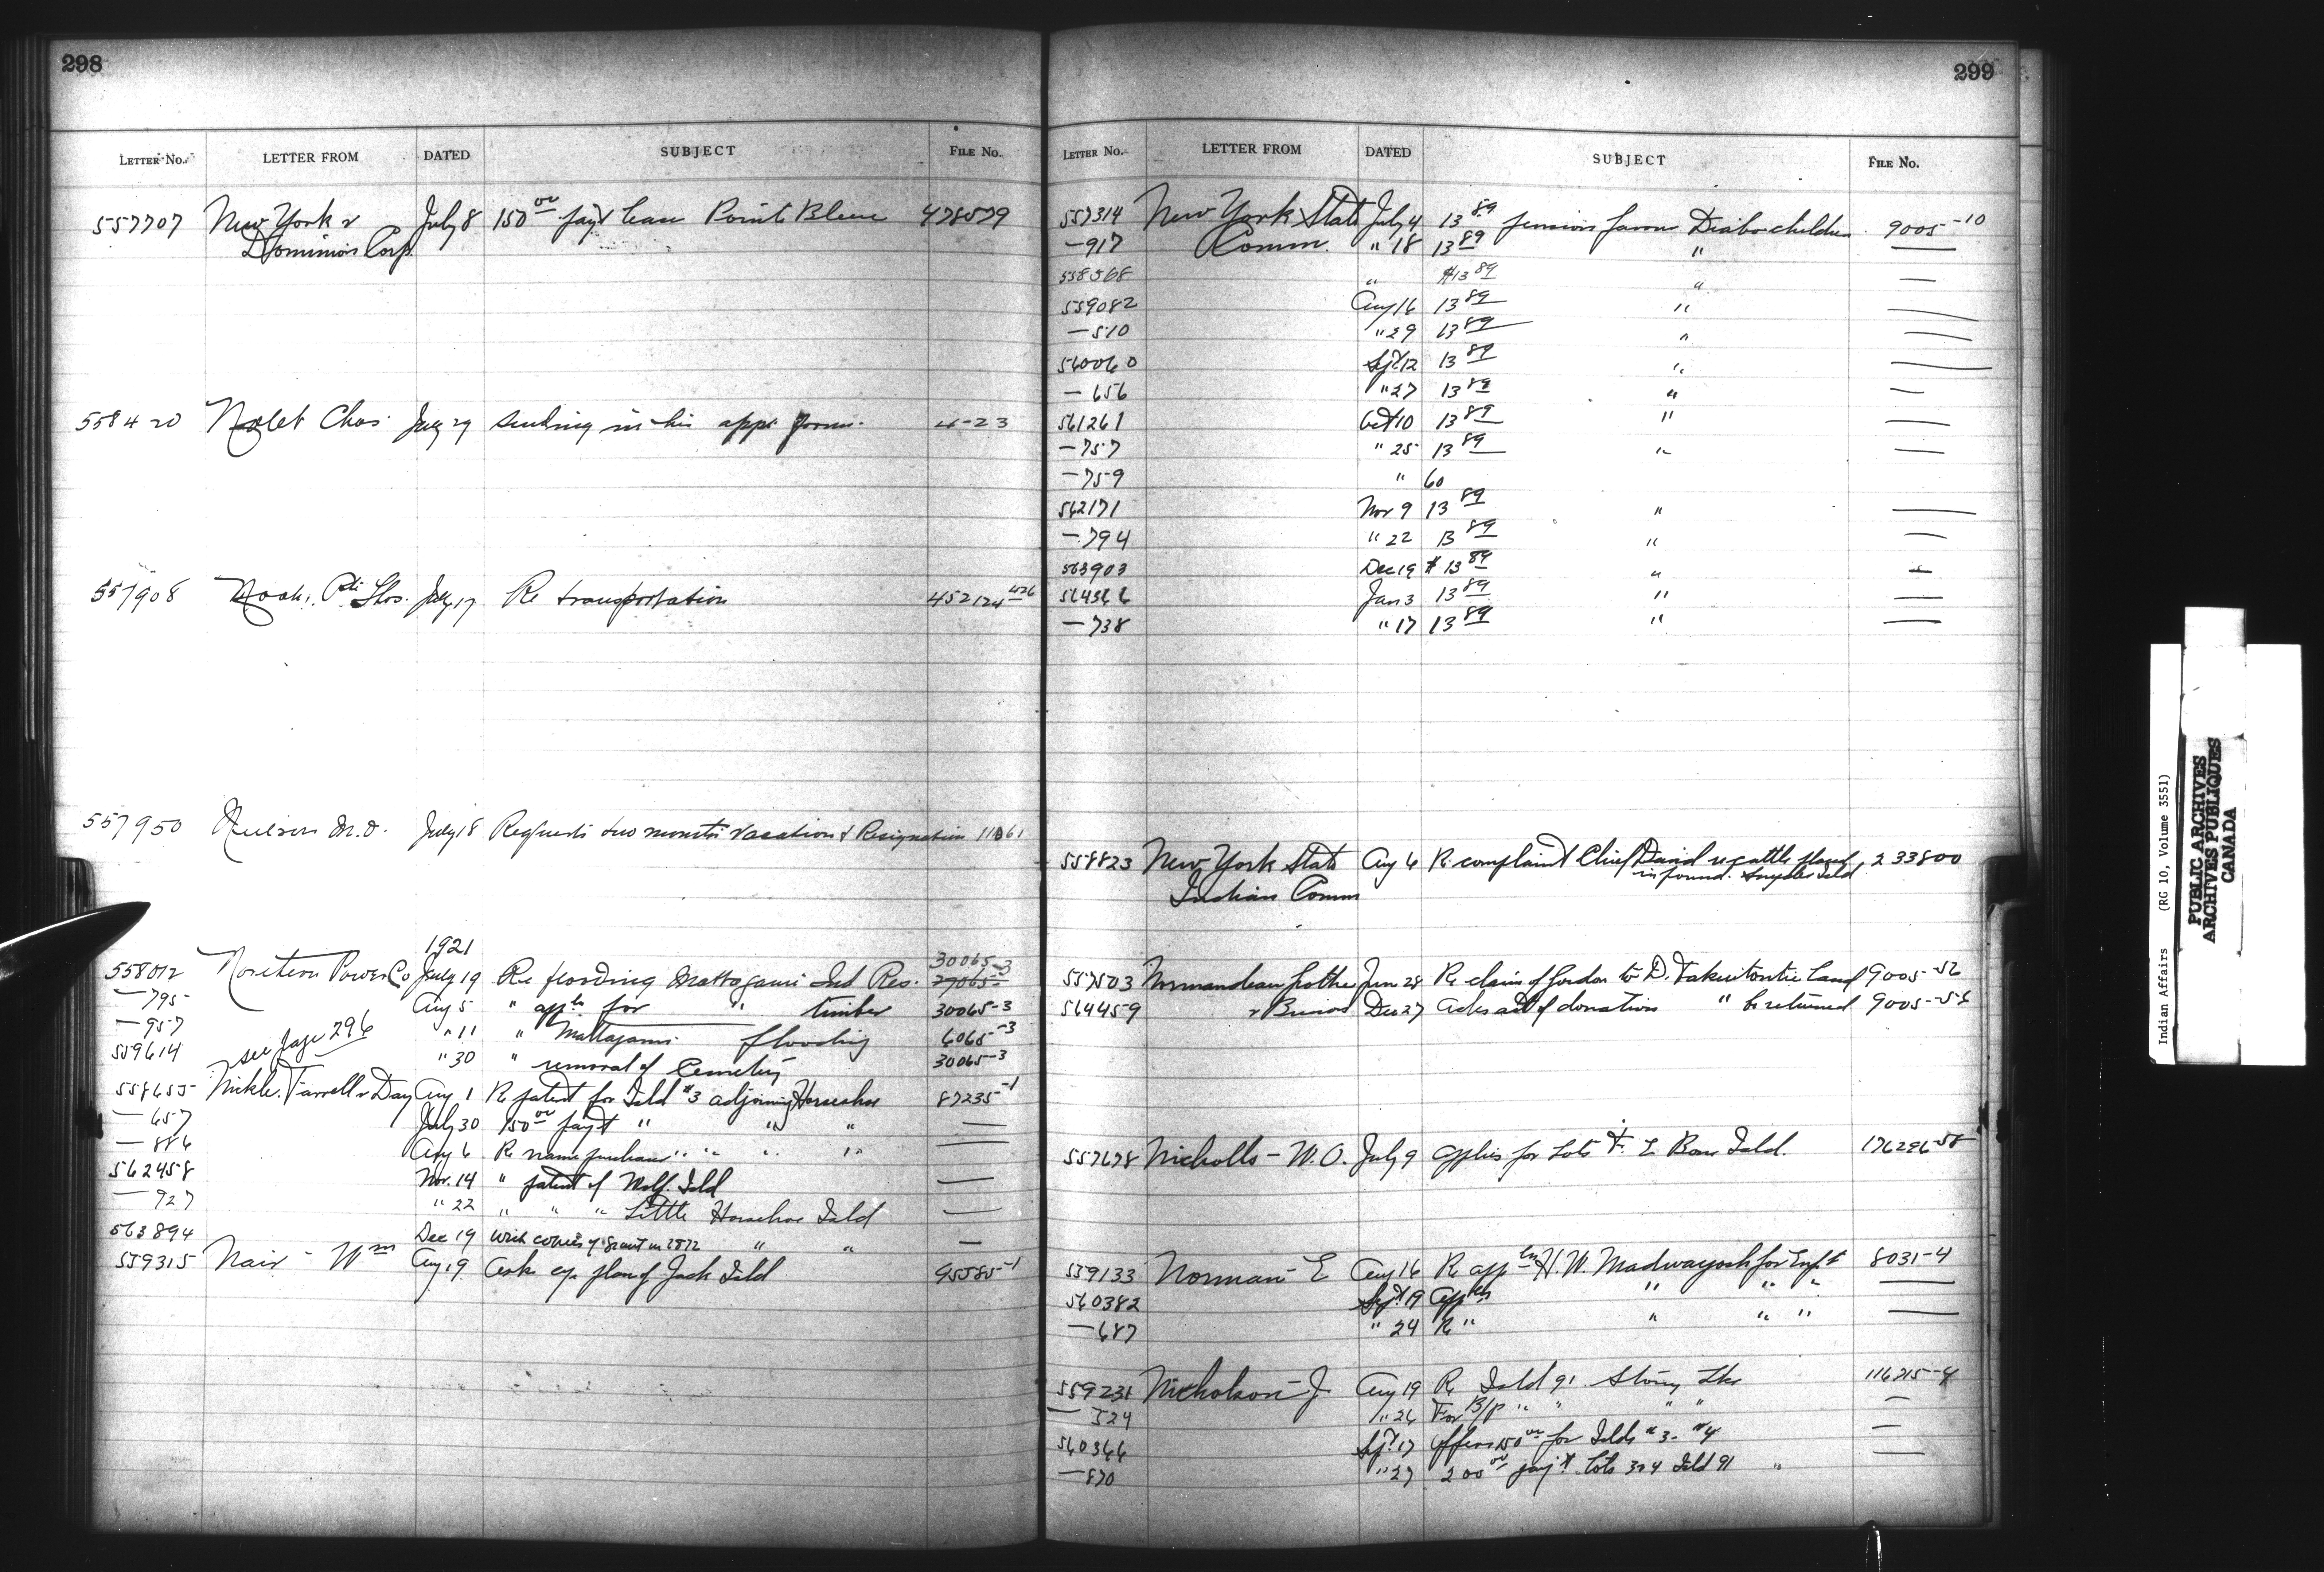 298
LETTER No. LETTER FROM DATED SUBJECT FILE No.
557707 New York & July 8 150 00 pay't lease Pointe Bleue 478579
Dominion Corp.
558420 Nolet Chas. July 29 sending in his appt form. 4-23
557908 Noah, Pte Thos. July 17 Re transportation 452124
557950 M.D. July 18 Requests two months vacation & Resignation 11061
1921
30065-3
558012 Northern Power Co July 19 Re flooding Mattagami Ind Res. 27065-
— 795 Aug 5 " appln for " timber 30065-3
— 957 " 11 " Mattagami flooding 6065-3
see page 296
559614 " 30 " removal of Cemetery 30065-3
558655 Nickle, Farrell & Day Aug 1 Re patent for Isld #3 adjoining Horseshoe 87235-1
— 657 July 30 150 00 pay't " " " —
— 886 Aug 6 Re name purchaser " " " " —
562458 Nov. 14 " patent of Wolf Isld —
— 927 " 22 " " " Little Horseshoe Isld —
563894 Dec 19 With copies of Grant in 1872 " " —
559315 Nair - Wm Aug 19 Asks cp. plan of Jack Isld 95585-1
299
LETTER No. LETTER FROM DATED SUBJECT FILE No.
557314 New York State July 4 13 89 pension favour Diabo children 9005-10
— 917 Comm. " 18 13 89 " —
558568 " $13 89 " —
559082 Aug 16 13 89 " —
— 510 " 29 13 89 " —
560060 Sept 12 13 89 " —
— 656 " 27 13 89 " —
561261 Oct 10 13 89 " —
— 757 " 25 13 89 " —
— 759 " 60
562171 Nov 9 13 89 " —
— 794 " 22 13 89 " —
563903 Dec 19 $ 13 89 " —
564366 Jan 3 13 89 " —
— 738 " 17 13 89 " —
558823 New York State Aug 6 Re complaint Chief David re cattle placed 233800
in pound. Isld
Indian Comm
557503 Jun 28 Re claim of Gordon to D. land 9005-56
564459 Dec 27 Asks act of donation " be returned 9005-56
557678 Nicholls - W.O. July 9 applies for Lots F. E Isld. 176296-58
559133 Norman E Aug 16 Re appln H.W. Madwayosh for Enf't 8031-4
560382 Sept 19 Appln " " " —
— 687 " 24 Re " " " " " —
559231 Nicholson J Aug 19 Re Isld 91 Stony Lke 116215-4
— 524 " 26 For B/P " " " " —
560366 Sept 17 offers 150 00 for Islds #3- #4 —
— 870 " 27 200 00 pay't Lots 3 & 4 Isld 91 " —
Indian Affairs (RG 10, Volume 3551)
PUBLIC ARCHIVES
ARCHIVES PUBLIQUES
CANADA